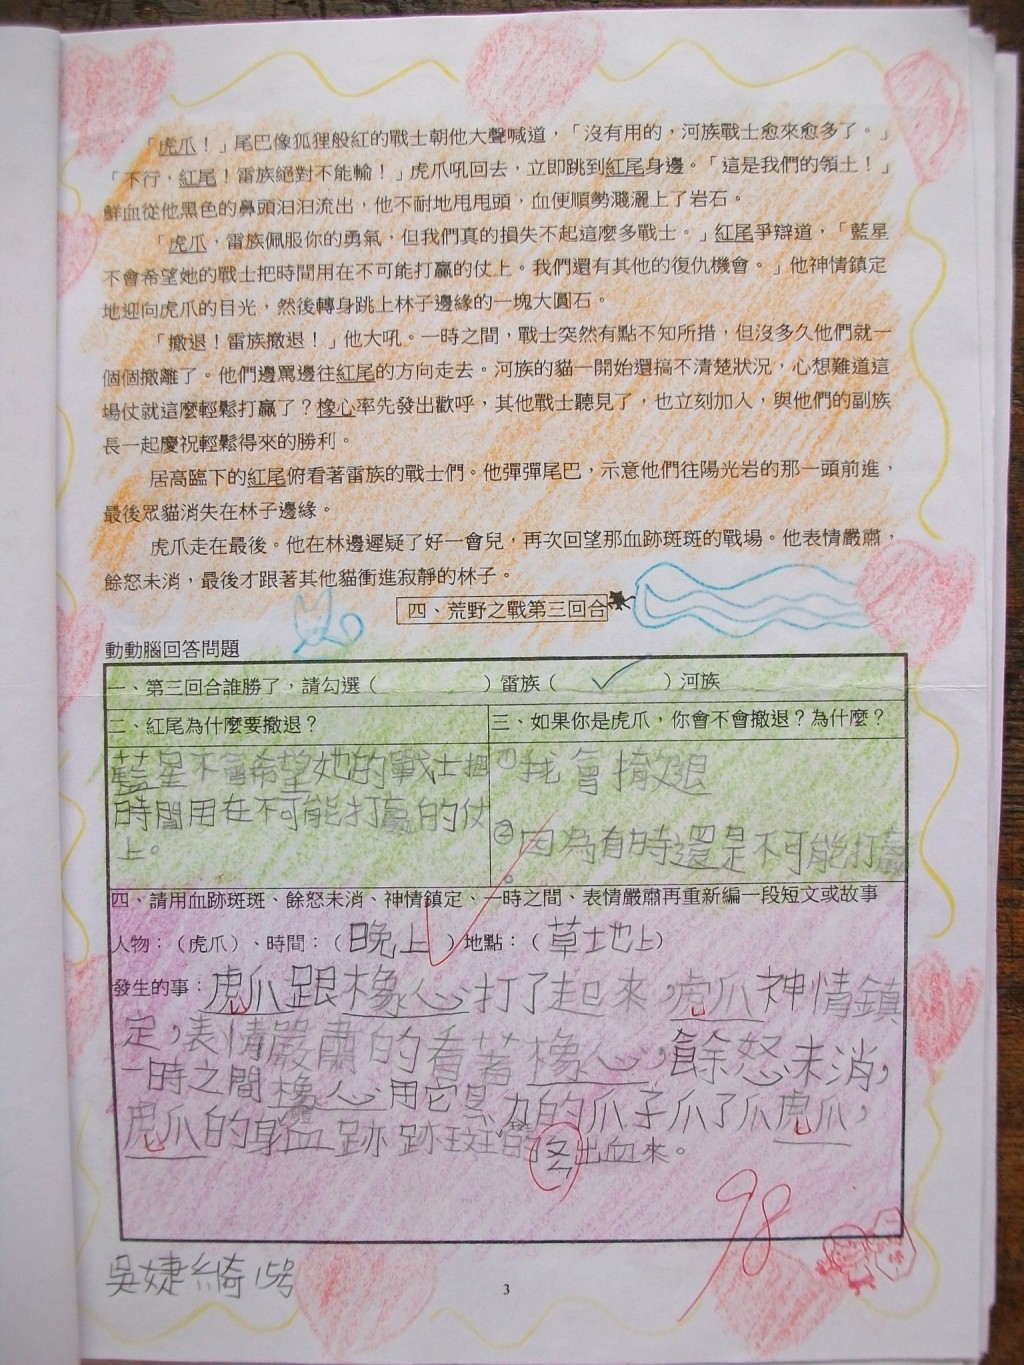 「虎爪！」尾巴像狐狸般紅的戰士朝他大聲喊道，「沒有用的，河族戰士愈來愈多了。」
「不行，紅尾！雷族絕對不能輸！」虎爪吼回去，立即跳到紅尾身邊。「這是我們的領土！」
鮮血從他黑色的鼻頭汩汩流出，他不耐地甩甩頭，血便順勢濺灑上了岩石。
「虎爪，雷族佩服你的勇氣，但我們真的損失不起這麼多戰士。」紅尾爭辯道，「藍星
不會希望她的戰士把時間用在不可能打贏的仗上。我們還有其他的復仇機會。」他神情鎮定
地迎向虎爪的目光，然後轉身跳上林子邊緣的一塊大圓石。
「撤退！雷族撤退！」他大吼。一時之間，戰士突然有點不知所措，但沒多久他們就一
個個撤離了。他們邊罵邊往紅尾的方向走去。河族的貓一開始還搞不清楚狀況，心想難道這
場仗就這麼輕鬆打贏了？橡心率先發出歡呼，其他戰士聽見了，也立刻加入，與他們的副族
長一起慶祝輕鬆得來的勝利。
居高臨下的紅尾俯看著雷族的戰士們。他彈彈尾巴，示意他們往陽光岩的那一頭前進，
最後眾貓消失在林子邊緣。
虎爪走在最後。他在林邊遲疑了好一會兒，再次回望那血跡斑斑的戰場。他表情嚴肅，
餘怒未消，最後才跟著其他貓衝進寂靜的林子。
四、荒野之戰第三回合
動動腦回答問題
一、第三回合誰勝了，請勾選（ ）雷族（ ✓ ）河族
二、紅尾為什麼要撤退？
藍星不會希望她的戰士把
時間用在不可能打贏的仗
上。
三、如果你是虎爪，你會不會撤退？為什麼？
①我會撤退
②因為有時還是不可能打贏
。
四、請用血跡斑斑、餘怒未消、神情鎮定、一時之間、表情嚴肅再重新編一段短文或故事
人物：（虎爪）、時間：（晚上）地點：（草地上）
發生的事：虎爪跟橡心打了起來，虎爪神情鎮
定，表情嚴肅的看著橡心，餘怒未消，
一時之間橡心用它的爪子爪了爪虎爪，
虎爪的身血跡斑出血來。
98
吳婕綺15號
3